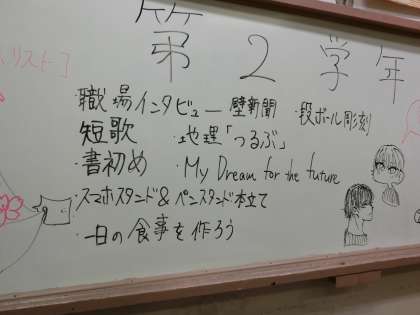 第2学年
リスト]
・職場インタビュー壁新聞 ・段ボール彫刻
短歌 ・地理「つるぶ」
・書初め ・My Dream for the future
・スマホスタンド&ペンスタンド本立て
・一日の食事を作ろう